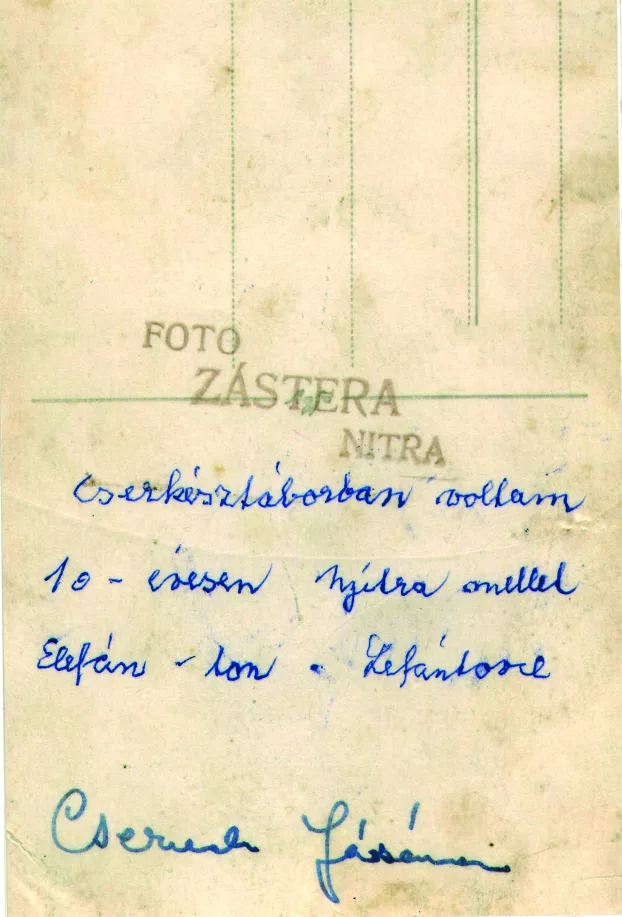 FOTO
ZÁSTERA
NITRA
Cserkésztáborban voltam
10 - évesen Nyitra mellet
Elefán - ton . Lefantovce